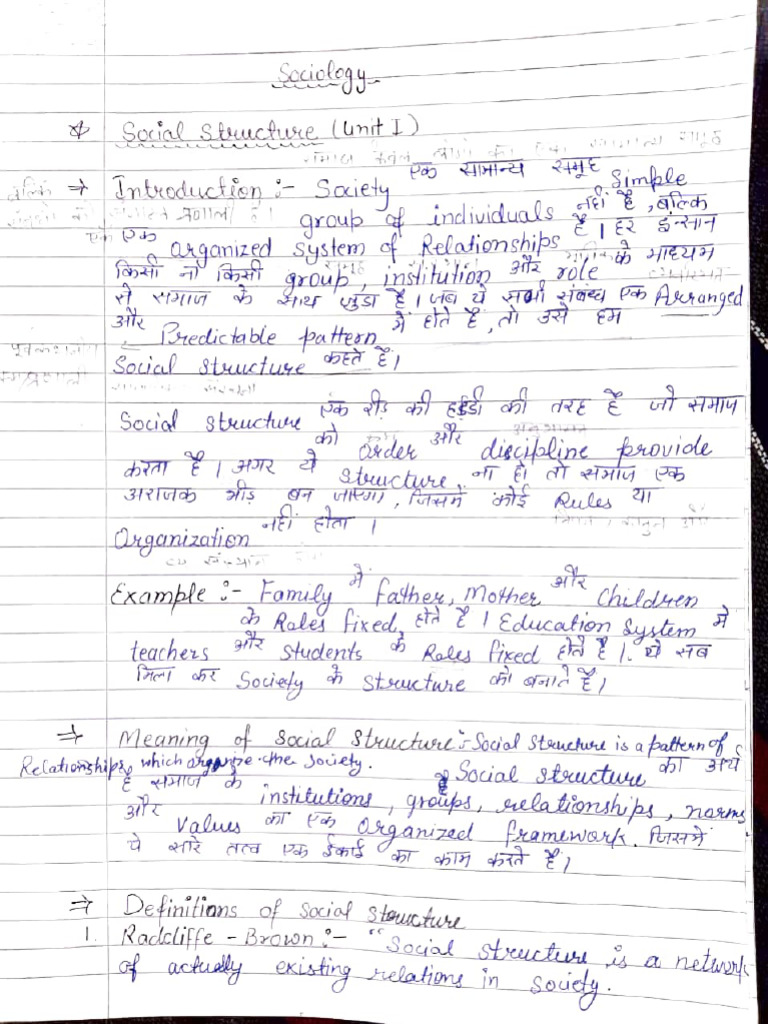 Sociology
Social Structure (Unit I)
Introduction :- Society एक सामान्य समूह Simple
group of individuals नहीं है, बल्कि
एक organized system of Relationships है। हर इन्सान
किसी ना किसी group, institution और role के माध्यम
से समाज के साथ जुडा है। जब ये सभी संबंध एक Arranged
और Predictable pattern में होते हैं, तो उसे हम
Social structure कहते हैं।
Social structure एक रीड़ की हड्डी की तरह है जो समाज
को order और discipline provide
करता है। अगर ये structure ना हो तो समाज एक
अराजक भीड़ बन जाएगा, जिसमें कोई Rules या
Organization नहीं होता।
Example :- Family में father, Mother और Children
के Roles fixed होते है। Education System में
teachers और students के Roles fixed होते है। ये सब
मिला कर Society के structure को बनाते हैं।
Meaning of Social Structure :- Social Structure is a pattern of
Relationships, which organize the society. Social structure का अर्थ
है समाज के institutions, groups, relationships, norms
और values का एक organized framework. जिसमें
ये सारे तत्व एक ईकाई का काम करते हैं।
Definitions of Social Structure
1. Radcliffe - Brown :- "Social structure is a network
of actually existing relations in Society.